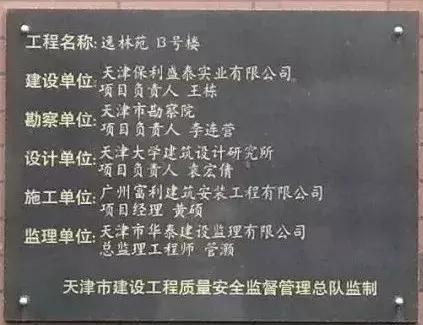 工程名称: 逸林苑 13号楼
建设单位: 天津保利盛泰实业有限公司
项目负责人 王栋
勘察单位: 天津市勘察院
项目负责人 李连营
设计单位: 天津大学建筑设计研究所
项目负责人 袁宏倩
施工单位: 广州富利建筑安装工程有限公司
项目经理 黄硕
监理单位: 天津市华泰建设监理有限公司
总监理工程师 管灏
天津市建设工程质量安全监督管理总队监制